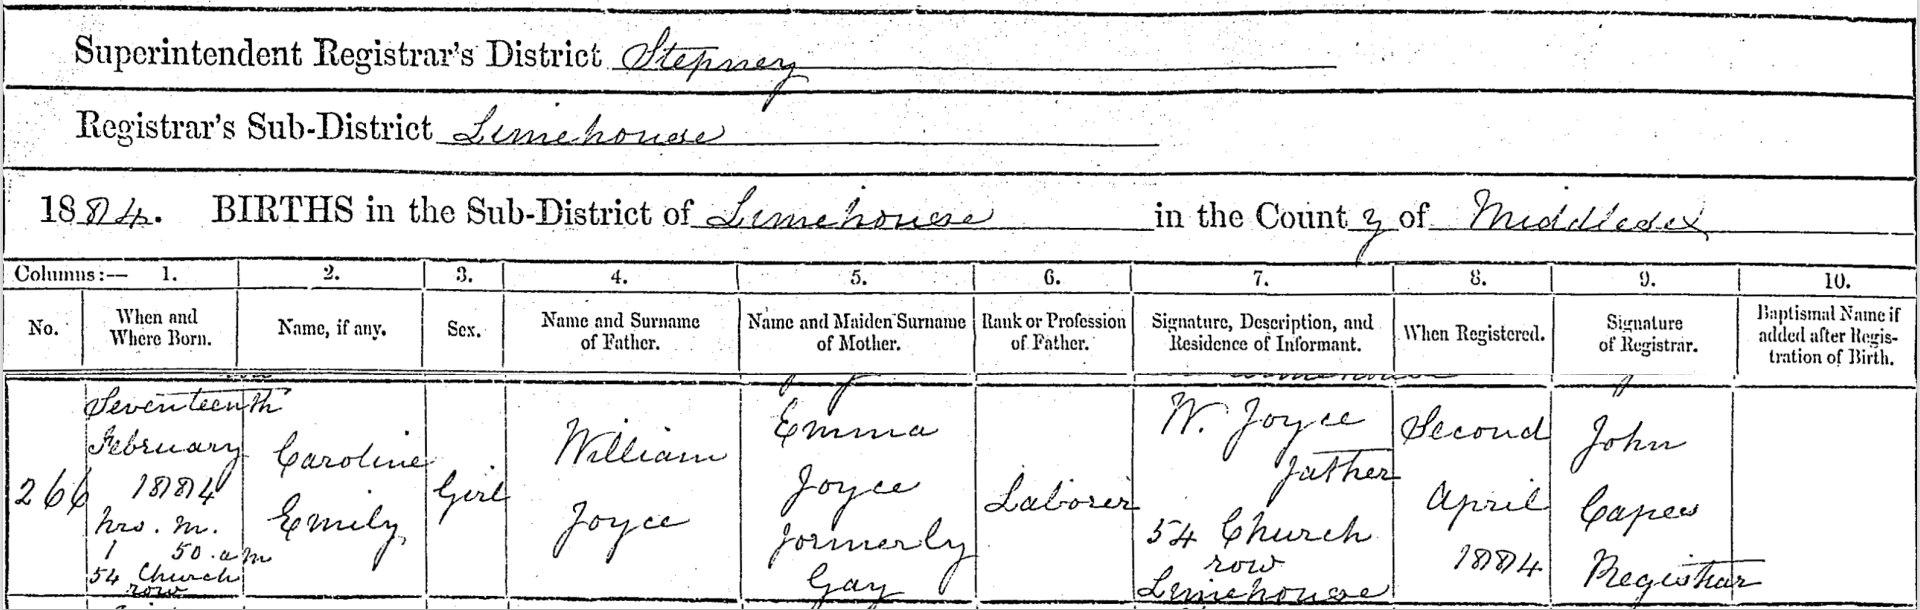 Superintendent Registrar's District Stepney
Registrar's Sub-District Limehouse
1884. BIRTHS in the Sub-District of Limehouse in the County of Middlesex
Columns:— 1. 2. 3. 4. 5. 6. 7. 8. 9. 10.
No.
When and
Where Born.
Name, if any.
Sex.
Name and Surname
of Father.
Name and Maiden Surname
of Mother.
Rank or Profession
of Father.
Signature, Description, and
Residence of Informant.
When Registered.
Signature
of Registrar.
Baptismal Name if
added after Regis-
tration of Birth.
266
Seventeenth
February
1884
hrs. m.
1 50 a m
54 Church
row
Caroline
Emily
Girl
William
Joyce
Emma
Joyce
formerly
Gay
Laborer
W. Joyce
father
54 Church
row
Limehouse
Second
April
1884
John
Capes
Registrar